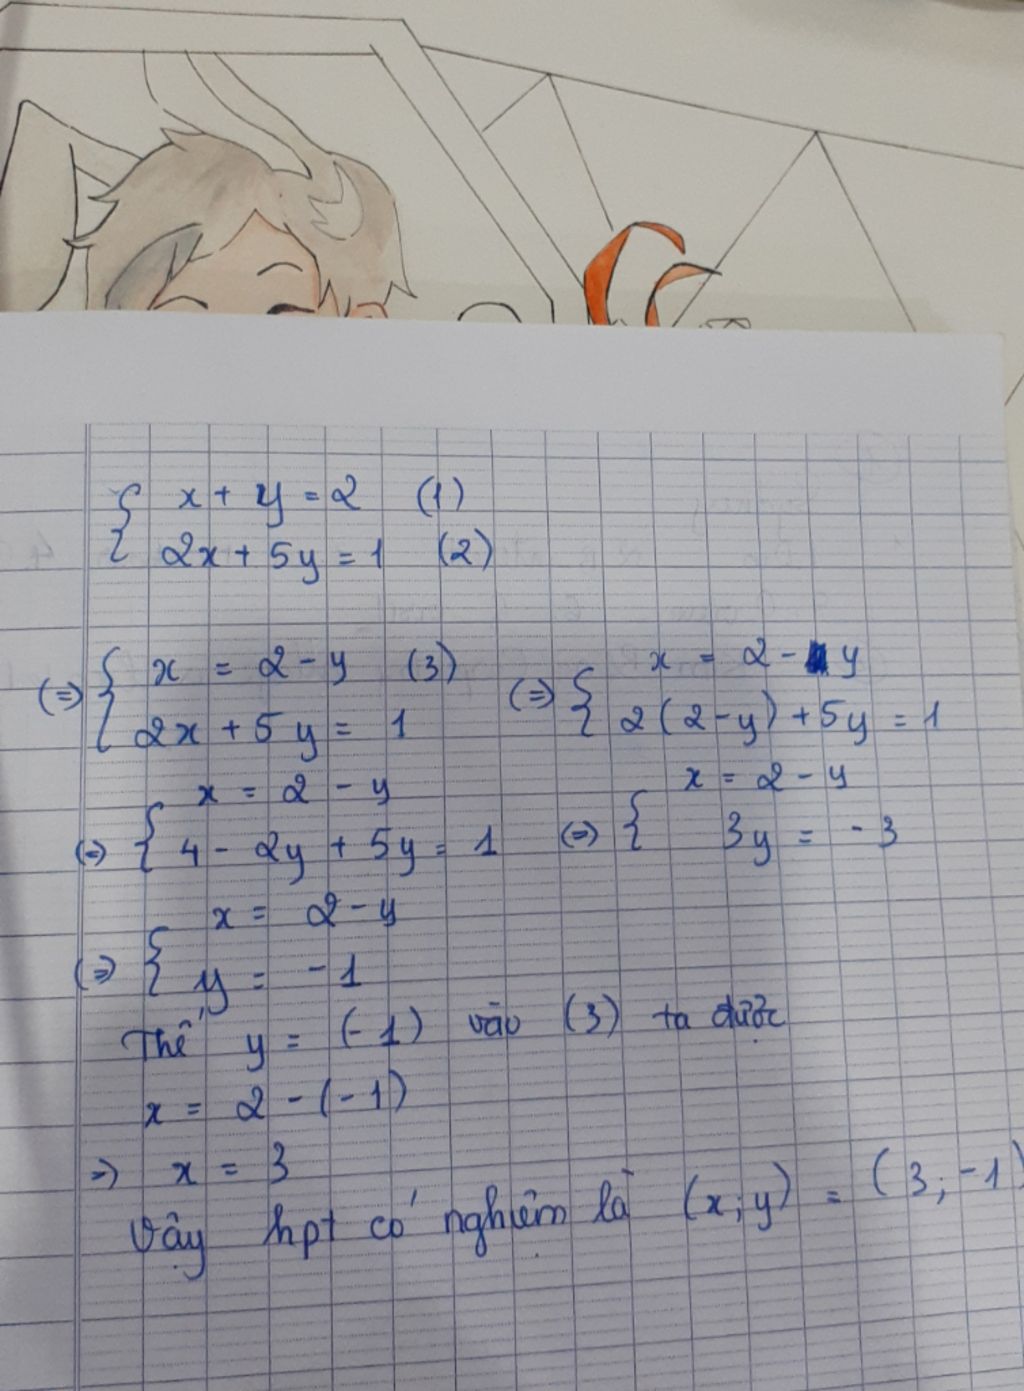 { x + y = 2 (1)
2x + 5y = 1 (2)
(=) { x = 2 - y (3)
2x + 5y = 1
(=) { x = 2 - y
2(2-y) + 5y = 1
(=) { x = 2 - y
4 - 2y + 5y = 1
(=) { x = 2 - y
3y = -3
(=) { x = 2 - y
y = -1
Thế y = (-1) vào (3) ta được
x = 2 - (-1)
=) x = 3
Vậy hpt có nghiệm là (x;y) = (3;-1)